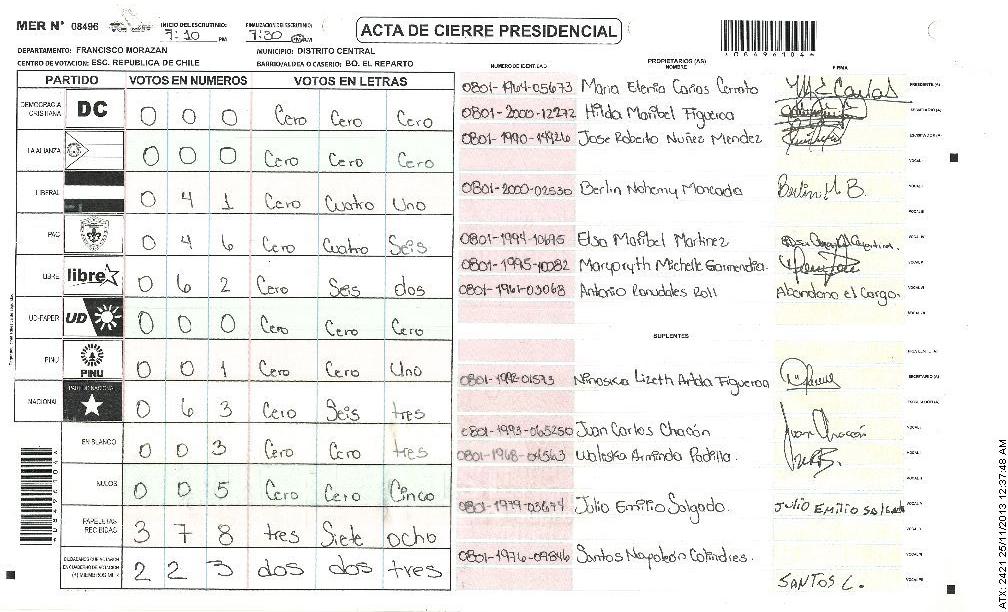 MER N° 08496
INICIO DEL ESCRUTINIO: 7:10 PM
FINALIZACION DEL ESCRUTINIO: 7:30 PM
ACTA DE CIERRE PRESIDENCIAL
DEPARTAMENTO: FRANCISCO MORAZAN
MUNICIPIO: DISTRITO CENTRAL
CENTRO DE VOTACION: ESC. REPUBLICA DE CHILE
BARRIO/ALDEA O CASERIO: BO. EL REPARTO
PARTIDO VOTOS EN NUMEROS VOTOS EN LETRAS
DEMOCRACIA CRISTIANA DC 0 0 0 Cero Cero Cero
LA ALIANZA 0 0 0 Cero Cero Cero
LIBERAL 0 4 1 Cero Cuatro Uno
PAC 0 4 6 Cero Cuatro Seis
LIBRE libre 0 6 2 Cero Seis dos
UD-FAPER UD 0 0 0 Cero Cero Cero
PINU PINU 0 0 1 Cero Cero Uno
NACIONAL PARTIDO NACIONAL 0 6 3 Cero Seis tres
EN BLANCO 0 0 3 Cero Cero tres
NULOS 0 0 5 Cero Cero Cinco
PAPELETAS RECIBIDAS 3 7 8 tres Siete ocho
CIUDADANOS QUE VOTARON 2 2 3 dos dos tres
NUMERO DE IDENTIDAD PROPIETARIOS (AS) NOMBRE FIRMA
0801-1964-05673 Maria Elena Carias Cerrato M E Carias PRESIDENTE (A)
0801-2000-12272 Hilda Maribel Figueroa SECRETARIO (A)
0801-1990-19926 Jose Roberto Nuñez Mendez ESCRUTADOR (A)
VOCAL I
0801-2000-02530 Berlin Nohemy Moncada Berlin M B. VOCAL II
VOCAL III
0801-1994-10695 Elsa Maribel Martinez VOCAL IV
0801-1995-10082 Michelle Garmendia VOCAL V
0801-1961-03068 Antonio Abandono el Cargo. VOCAL VI
SUPLENTES
0801-1992-01573 Lizeth Figueroa SECRETARIO (A)
0801-1993-065250 Juan Carlos Chacón Juan Chacón
0801-1968-04563 Waleska Armida Padilla
0801-1979-03674 Julio Emilio Salgado. JULIO EMILIO SALGADO
0801-1976-09846 Santos Napoleón Colindres.
SANTOS C.
ATX: 2421 25/11/2013 12:37:48 AM